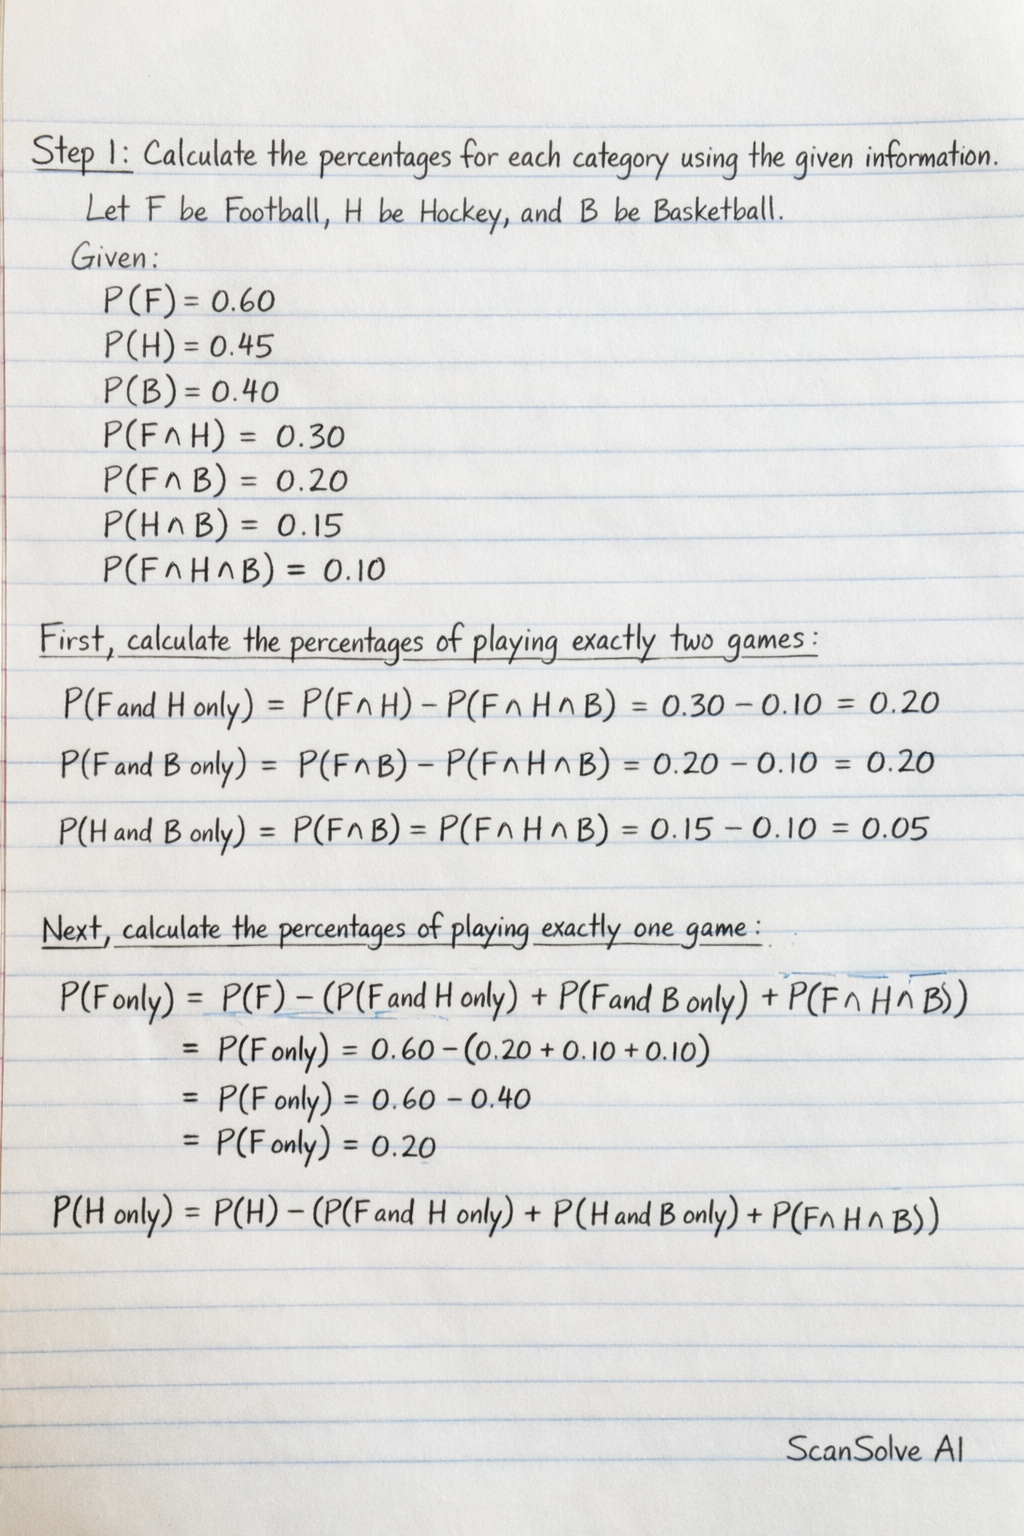 Step 1: Calculate the percentages for each category using the given information.
Let F be Football, H be Hockey, and B be Basketball.
Given:
P(F) = 0.60
P(H) = 0.45
P(B) = 0.40
P(F ∩ H) = 0.30
P(F ∩ B) = 0.20
P(H ∩ B) = 0.15
P(F ∩ H ∩ B) = 0.10
First, calculate the percentages of playing exactly two games:
P(F and H only) = P(F ∩ H) − P(F ∩ H ∩ B) = 0.30 − 0.10 = 0.20
P(F and B only) = P(F ∩ B) − P(F ∩ H ∩ B) = 0.20 − 0.10 = 0.20
P(H and B only) = P(F ∩ B) = P(F ∩ H ∩ B) = 0.15 − 0.10 = 0.05
Next, calculate the percentages of playing exactly one game:
P(F only) = P(F) − (P(F and H only) + P(F and B only) + P(F ∩ H ∩ B))
= P(F only) = 0.60 − (0.20 + 0.10 + 0.10)
= P(F only) = 0.60 − 0.40
= P(F only) = 0.20
P(H only) = P(H) − (P(F and H only) + P(H and B only) + P(F ∩ H ∩ B))
ScanSolve AI